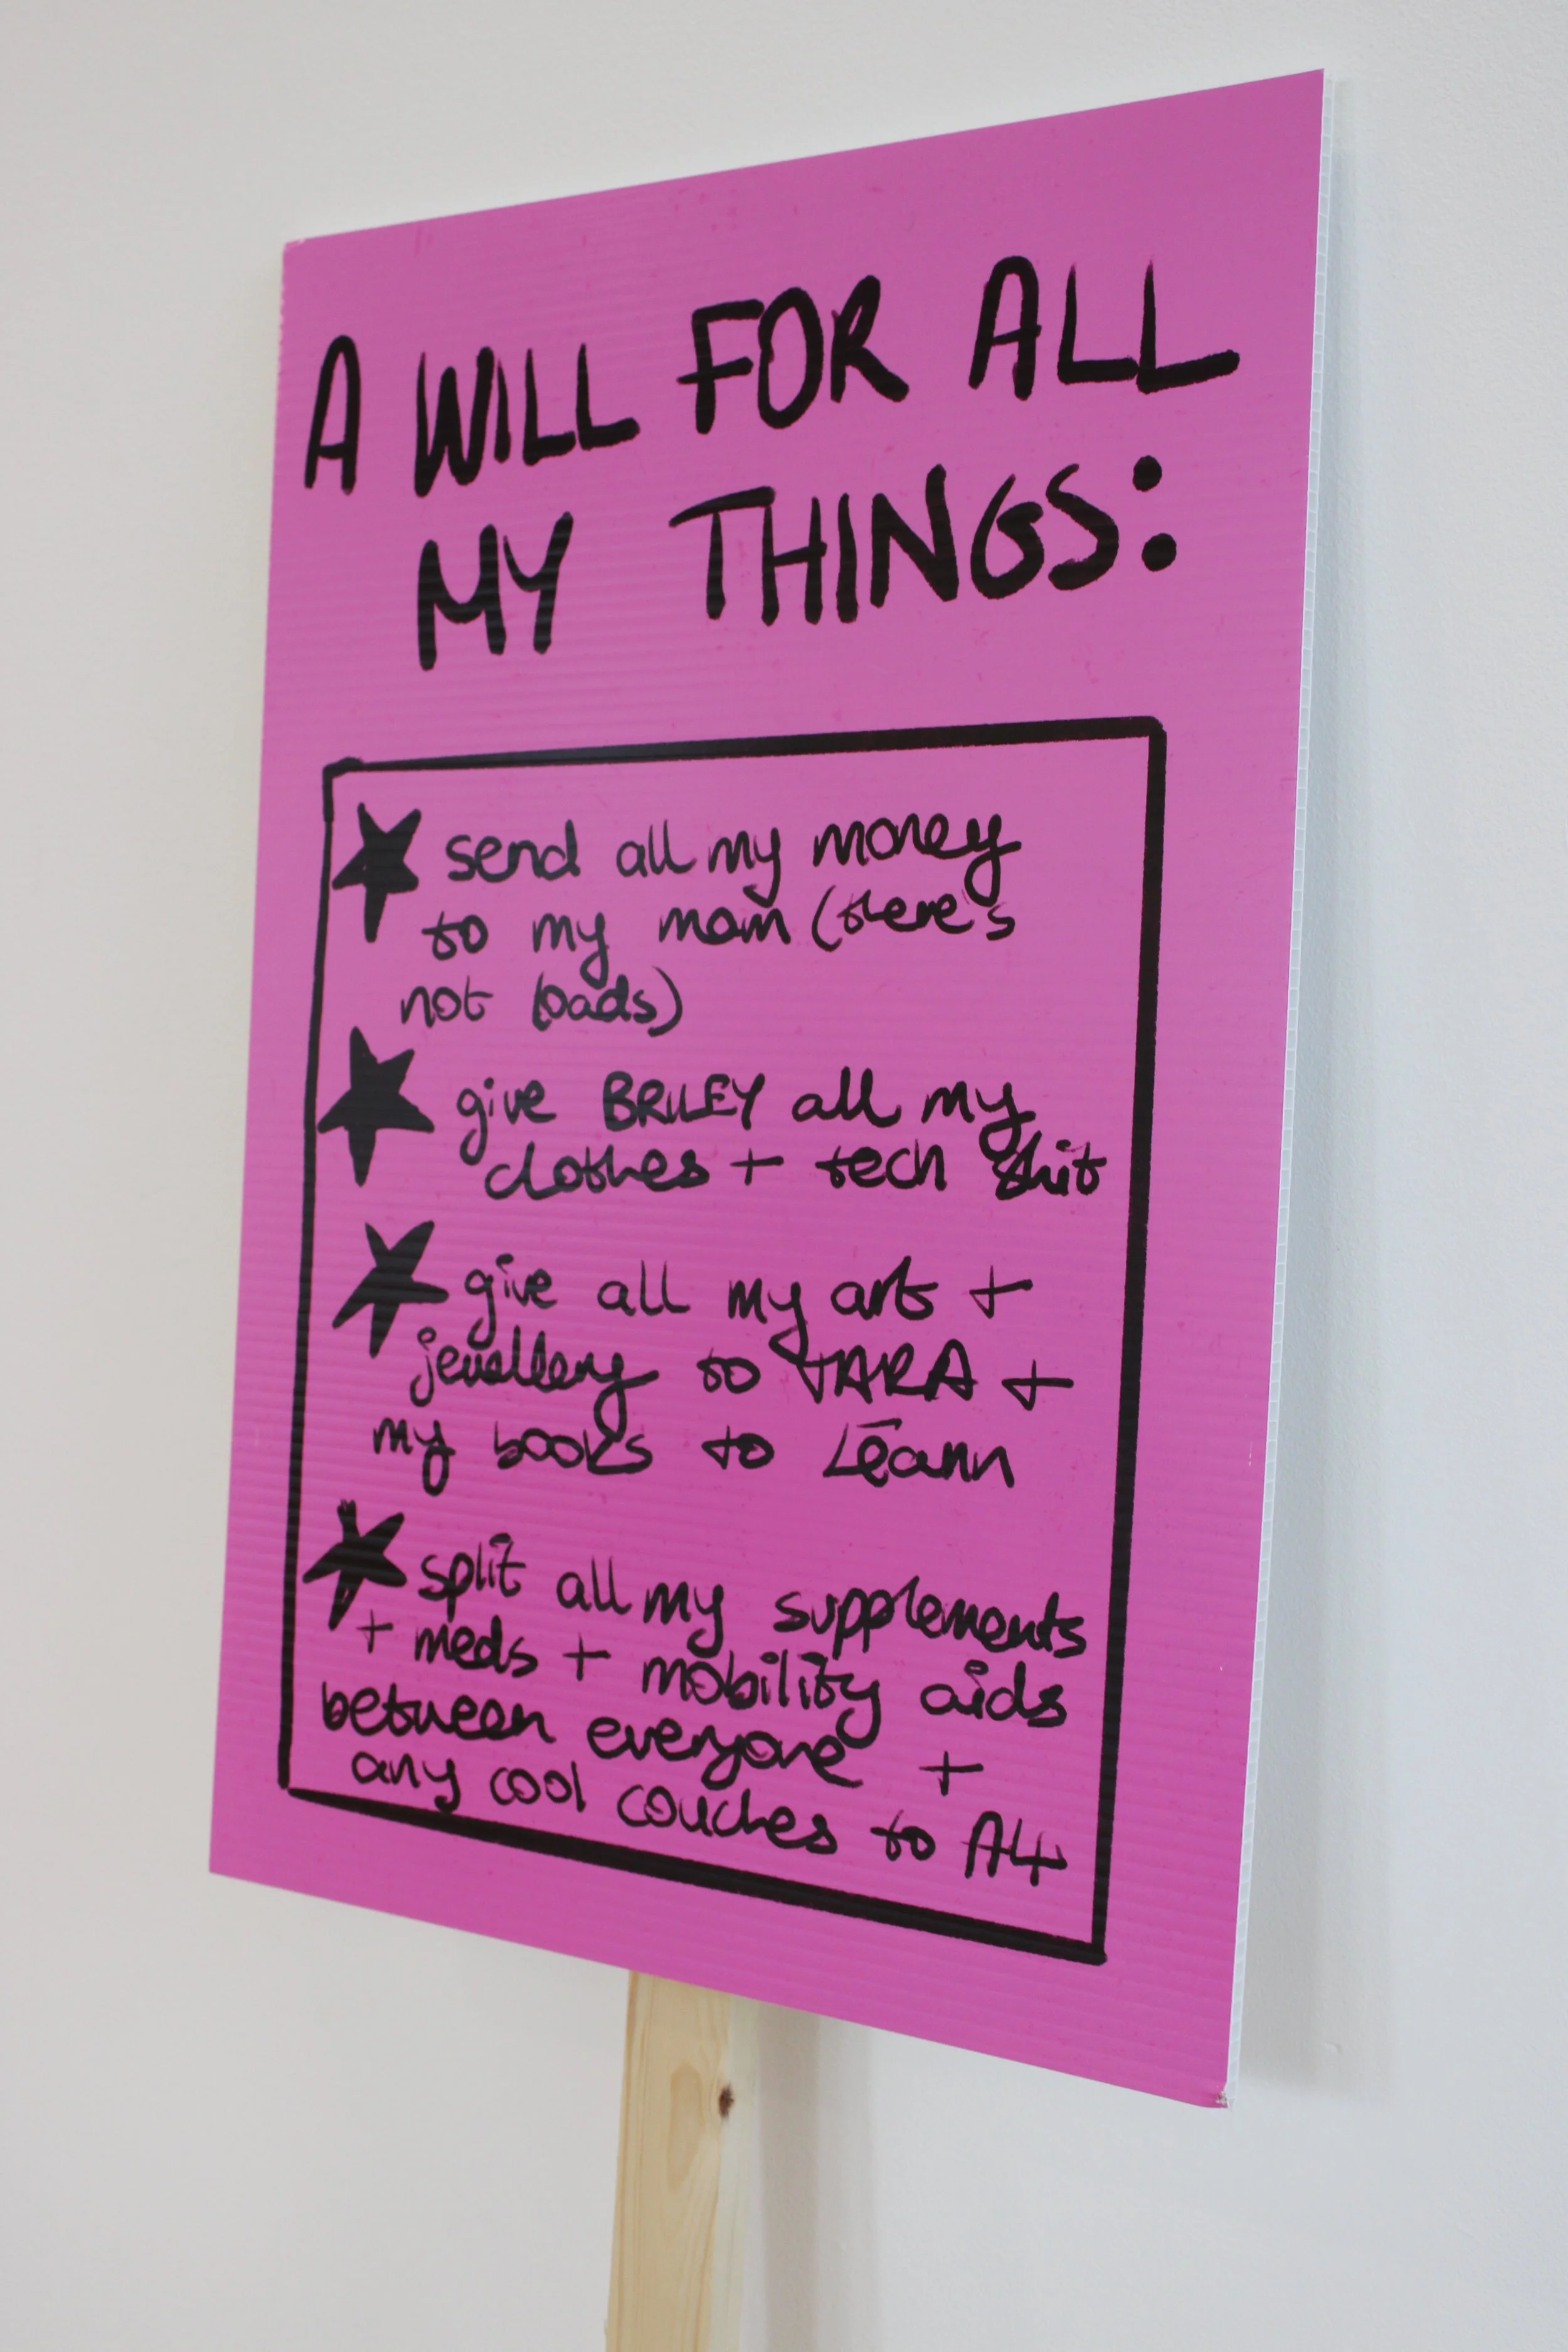 A WILL FOR ALL
MY THINGS:
send all my money
to my mam (there's
not loads)
give BRILEY all my
clothes + tech shit
give all my art +
jewellery to TARA +
my books to Léann
split all my supplements
+ meds + mobility aids
between everyone +
any cool couches to A4